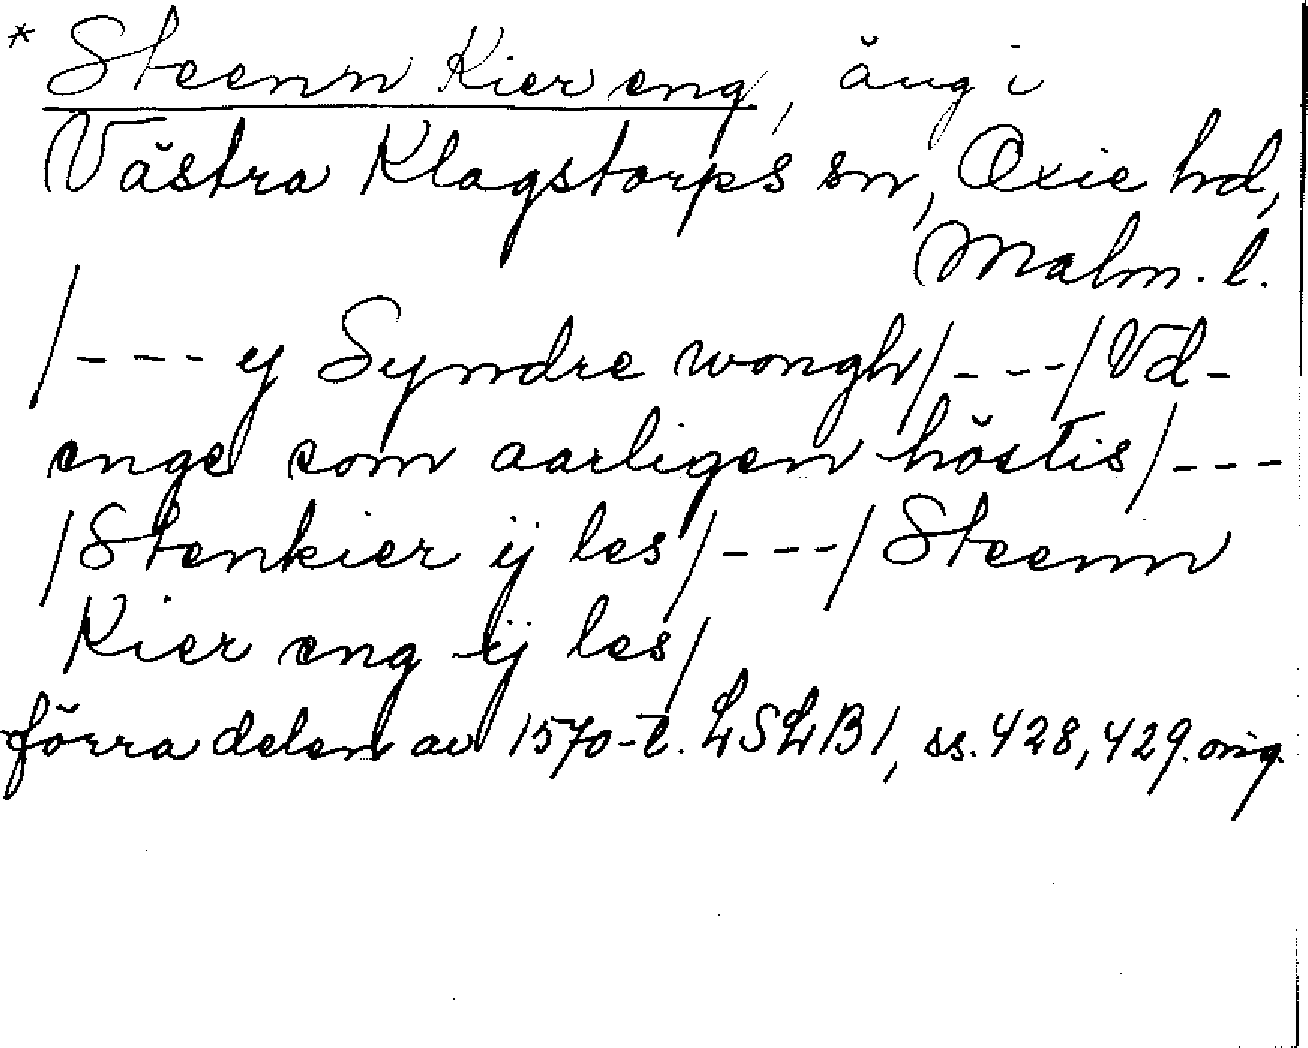 * Steenn Kier eng, äng i
Västra Klagstorps sn, Oxie hd,
Malm. l.
/---y Syndre wongh/---/Vd-
enge som aarligen höstis/---
/Stenkier ij les/---/Steenn
Kier eng ij les/
förra delen av 1570-t. LSLB1, ss. 428, 429. orig.